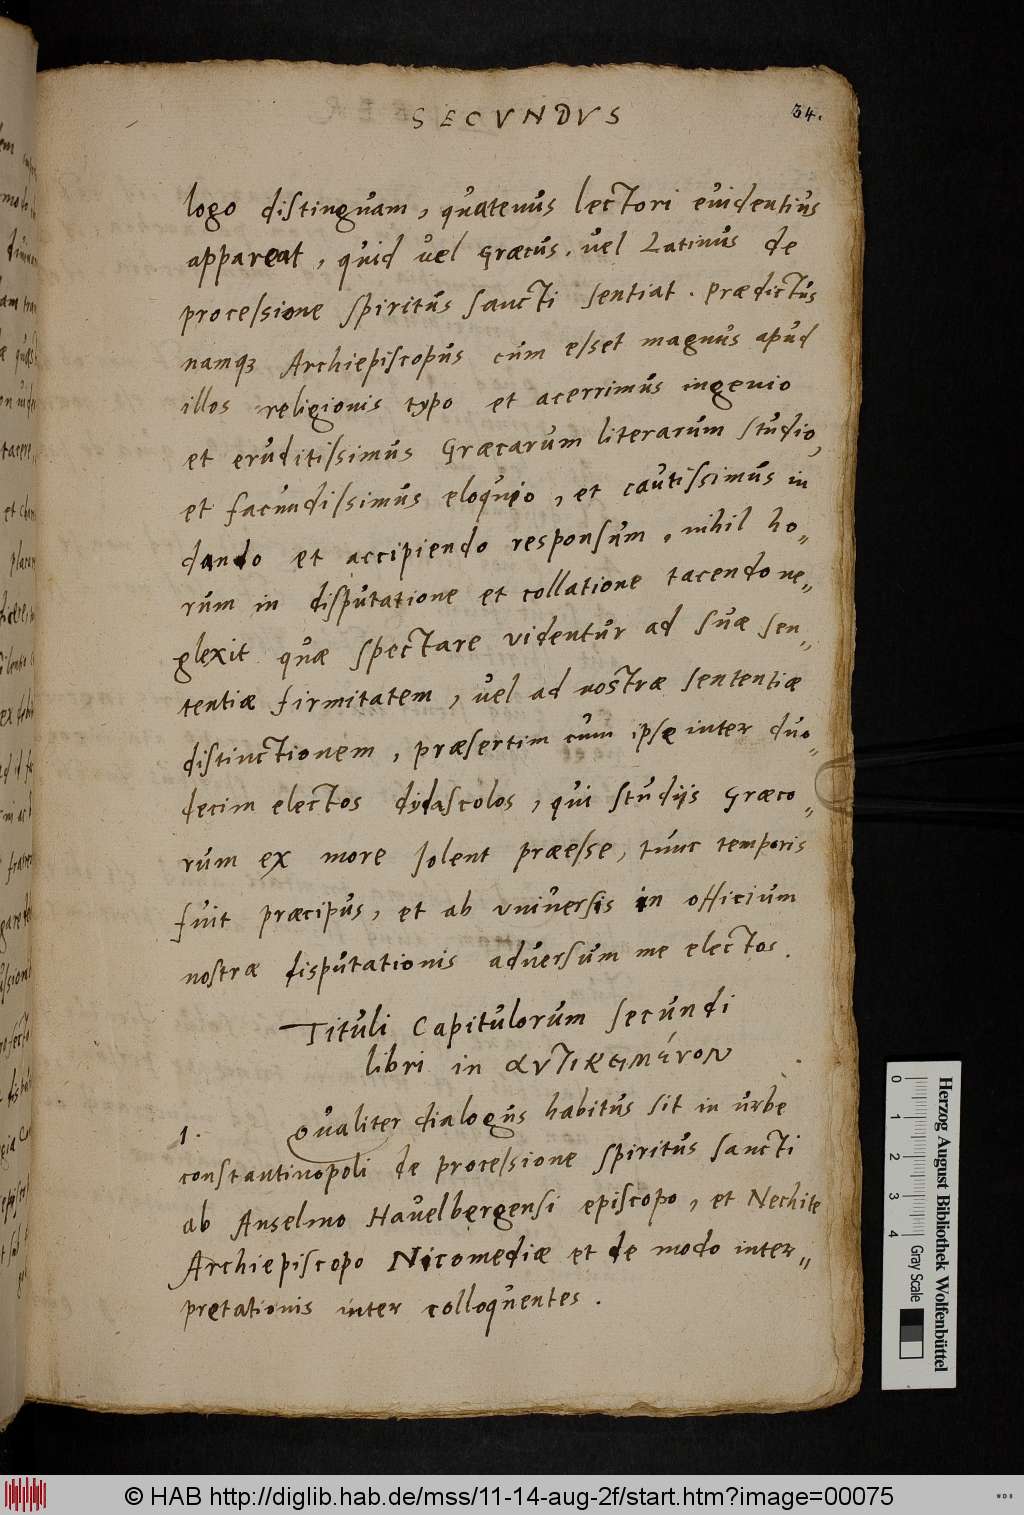 SECVNDVS
34.
logo distinguam, quatenus lectori euidentius
appareat, quid uel Græcus, uel Latinus de
processione spiritus sancti sentiat. Prædictus
namqꝫ Archiepiscopus cum esset magnus apud
illos religionis typo et acerrimus ingenio
et eruditissimus Græcarum literarum studio,
et facundissimus eloquio, et cautissimus in
dando et accipiendo responsum, nihil ho„
rum in disputatione et collatione tacendo ne„
glexit quæ spectare videntur ad suæ sen„
tentiæ firmitatem, uel ad nostræ sententiæ
distinctionem, præsertim cum ipse inter duo„
decim electos dydascolos, qui studijs Græco„
rum ex more solent præesse, tunc temporis
fuit præcipus, et ab vniuersis in officium
nostræ disputationis aduersum me electos.
Tituli Capitulorum secundi
libri in αντικειμένον
1. Qualiter dialogus habitus sit in urbe
constantinopoli de processione spiritus sancti
ab Anselmo Hauelbergensi episcopo, et Nechite
Archiepiscopo Nicomediæ et de modo inter„
pretationis inter colloquentes.
Herzog August Bibliothek Wolfenbüttel
0 1 2 3 4 Gray Scale
© HAB http://diglib.hab.de/mss/11-14-aug-2f/start.htm?image=00075